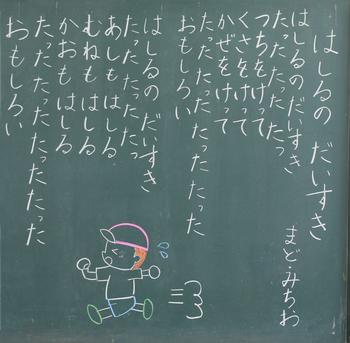 はしるの だいすき
まど・みちお
はしるのだいすき
たったたったたっ
つちをけって
くさをけって
かぜをけって
たったたったたったたった
おもしろい
はしるの だいすき
たったたったたっ
あしもはしる
むねもはしる
かおもはしる
たったたったたったたった
おもしろい